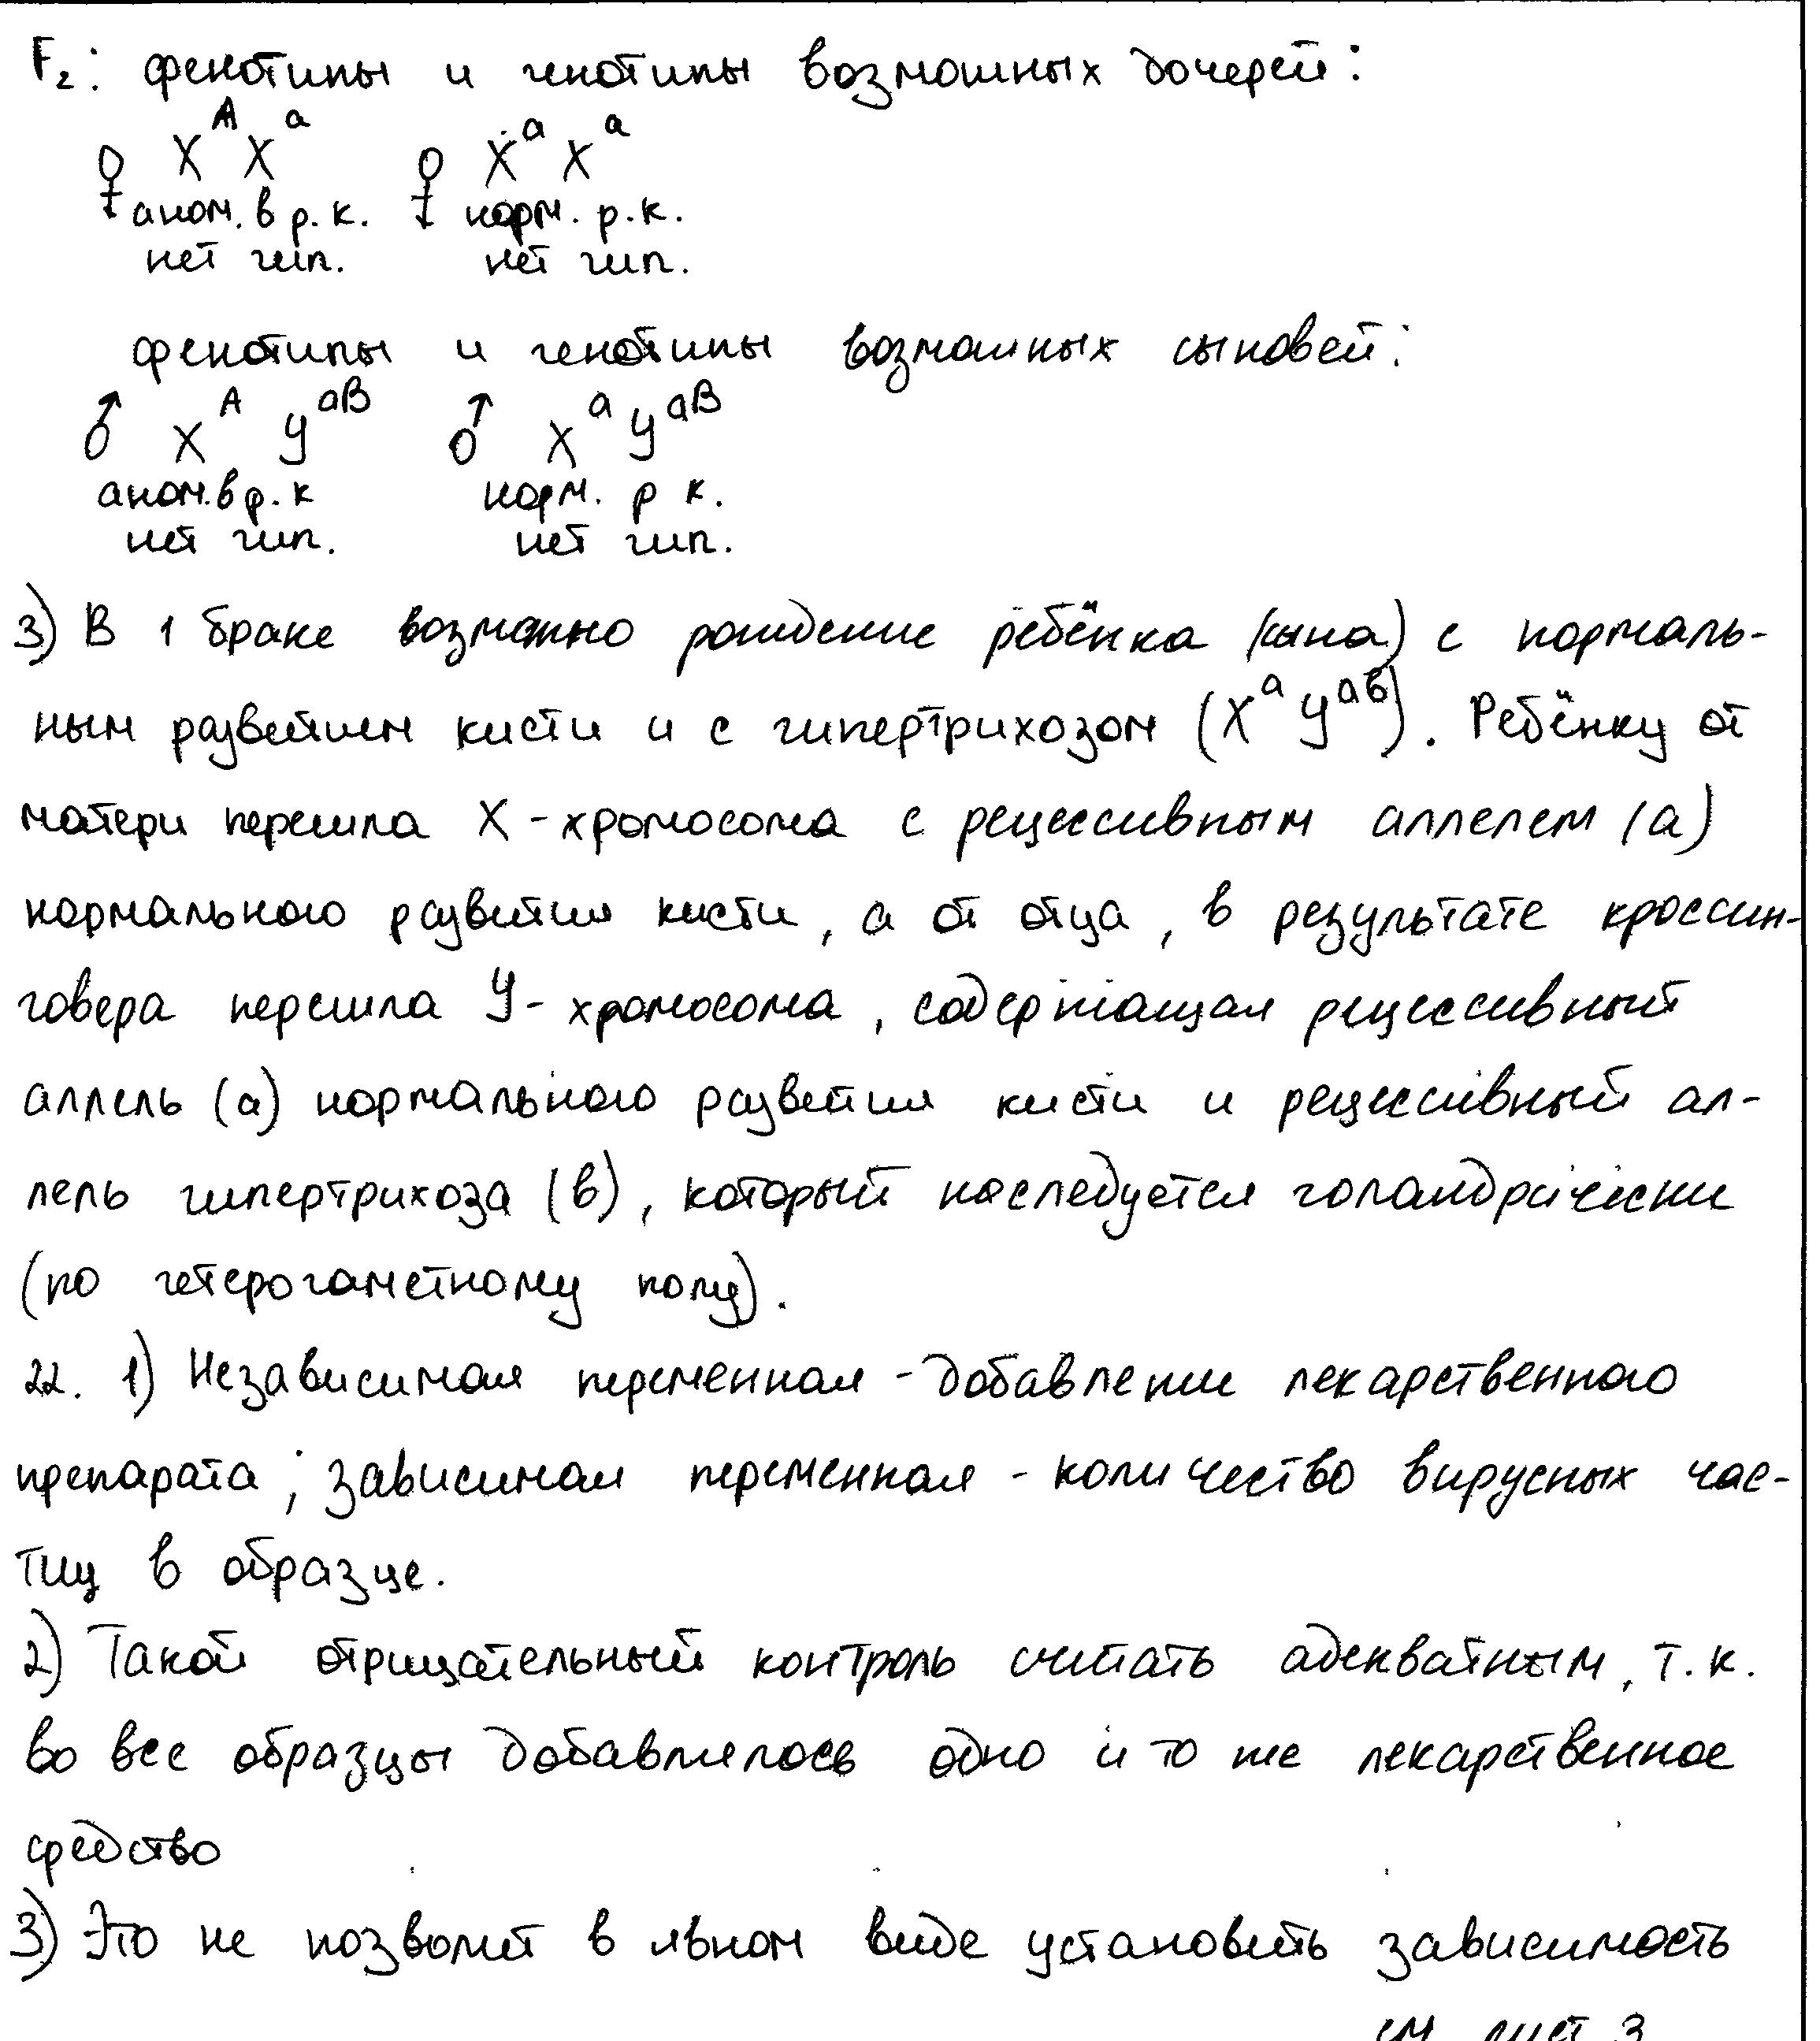 F₂: фенотипы и генотипы возможных дочерей:
♀ Xᴬ Xᵃ ♀ Xᵃ Xᵃ
аном. в р. к. норм. р. к.
нет гип. нет гип.
фенотипы и генотипы возможных сыновей:
♂ Xᴬ Yᵃᴮ ♂ Xᵃ Yᵃᴮ
аном. в р. к норм. р к.
нет гип. нет гип.
3) В 1 браке возможно рождение ребёнка (сына) с нормаль-
ным развитием кисти и с гипертрихозом (Xᵃ Yᵃᵇ). Ребёнку от
матери перешла X-хромосома с рецессивным аллелем (a)
нормального развития кисти, а от отца, в результате кроссин-
говера перешла Y-хромосома, содержащая рецессивный
аллель (a) нормального развития кисти и рецессивный ал-
лель гипертрихоза (b), который наследуется голандрически
(по гетерогаметному полу).
22. 1) Независимая переменная - добавление лекарственного
препарата; зависимая переменная - количество вирусных час-
тиц в образце.
2) Такой отрицательный контроль считать адекватным, т. к.
во все образцы добавлялось одно и то же лекарственное
средство
3) Это не позволит в явном виде установить зависимость
см лист 3